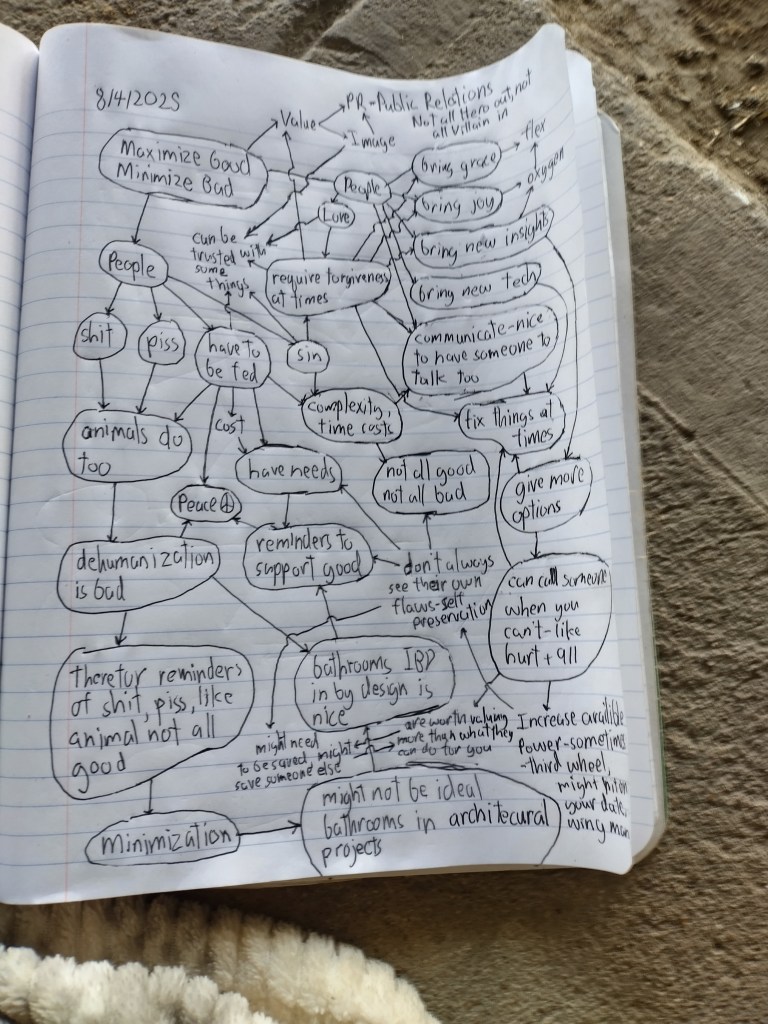 8/4/2025
Value
PR-Public Relations
Not all Hero out, not
all Villain in
Image
Maximize Good
Minimize Bad
People
Love
bring grace
flex
bring joy
oxygen
bring new insights
bring new tech
can be
trusted with
some
things
require forgiveness
at times
communicate-nice
to have someone to
talk too
People
shit
piss
have to
be fed
sin
complexity,
time costs
fix things at
times
animals do
too
cost
have needs
not all good
not all bad
give more
options
Peace
dehumanization
is bad
reminders to
support good
don't always
see their own
flaws-self
preservation
can call someone
when you
can't-like
hurt + 911
therefor reminders
of shit, piss, like
animal not all
good
bathrooms IBD
in by design is
nice
might need
to be saved, might
save someone else
are worth valuing
more than what they
can do for you
Increase availible
Power-sometimes
-third wheel,
might
your date,
wing man
minimization
might not be ideal
bathrooms in architecural
projects